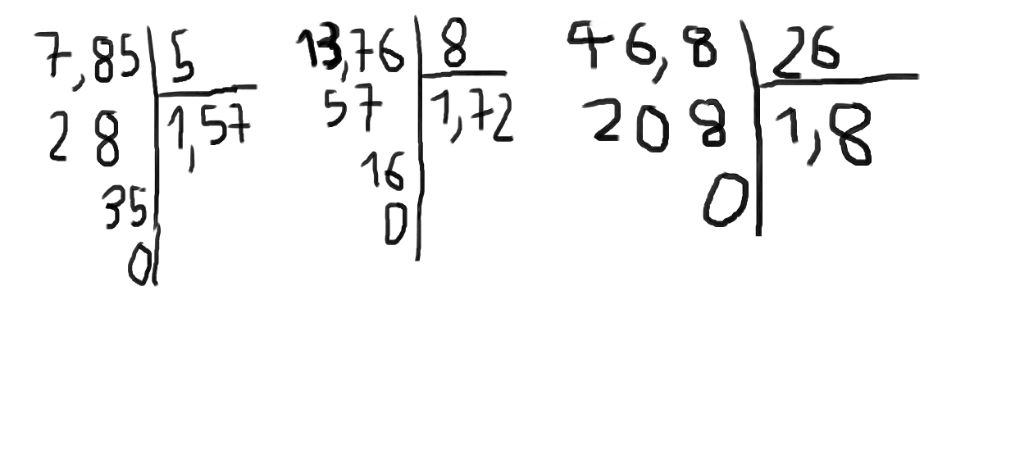 7,85 5 13,76 8 46,8 26
28 1,57 57 1,72 208 1,8
35 16 0
0 0